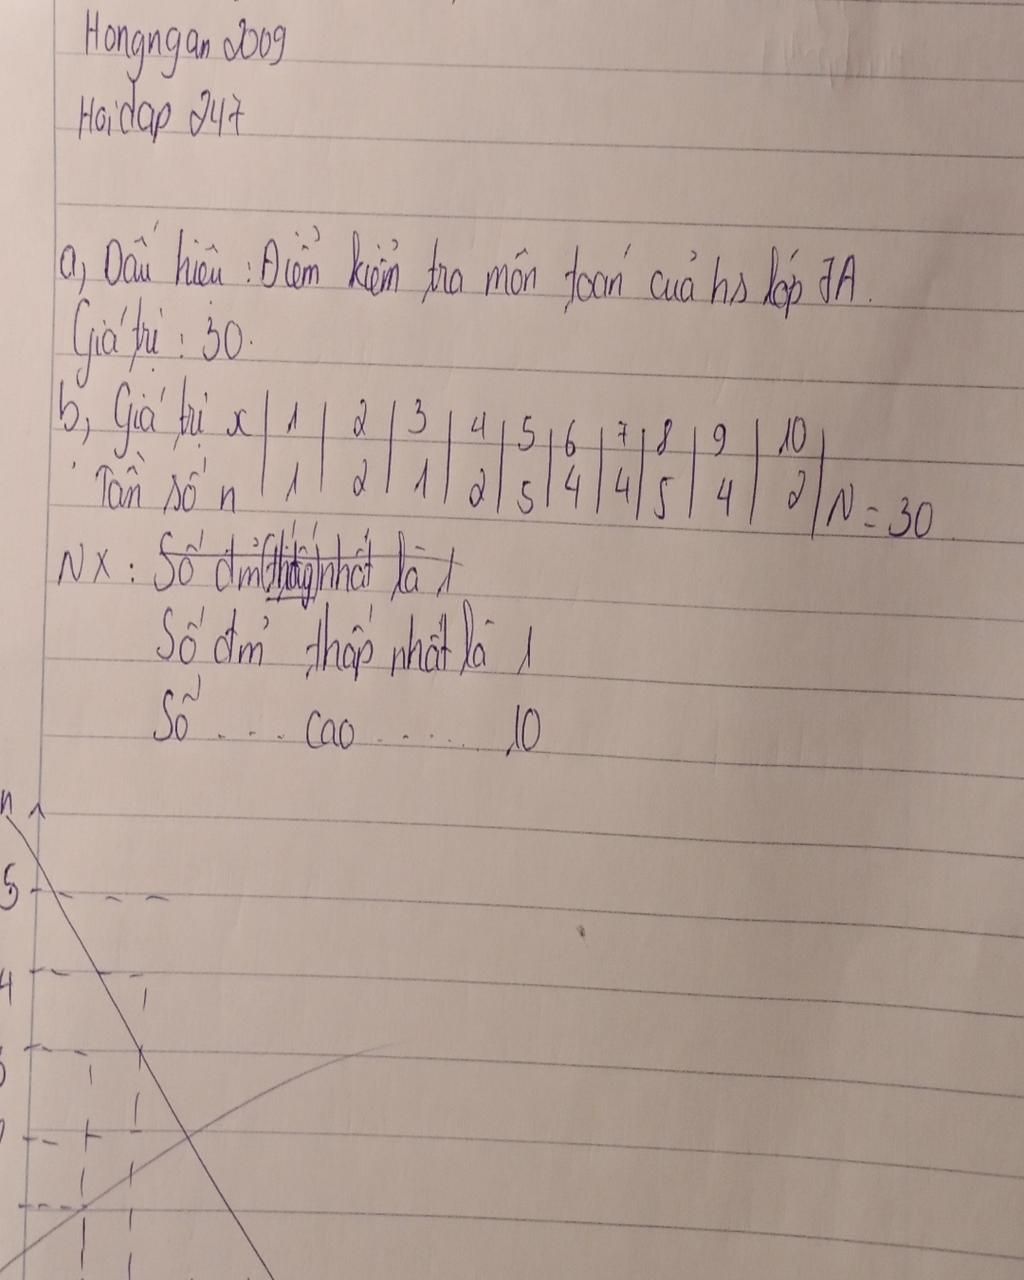 Hongngan 2009
Hoidap 247
a, Dấu hiêu : Điểm kiểm tra môn toán củả hs lớp 7A.
Giá trị : 30.
b, Giá trị x | 1 | 2 | 3 | 4 | 5 | 6 | 7 | 8 | 9 | 10 |
Tần số n | 1 | 2 | 1 | 2 | 5 | 4 | 4 | 5 | 4 | 2 | N = 30
NX : Số đm̉ nhất là 1
Số đm̉ thấp nhất là 1
Số .... cao ..... 10
n
5
4
3
2